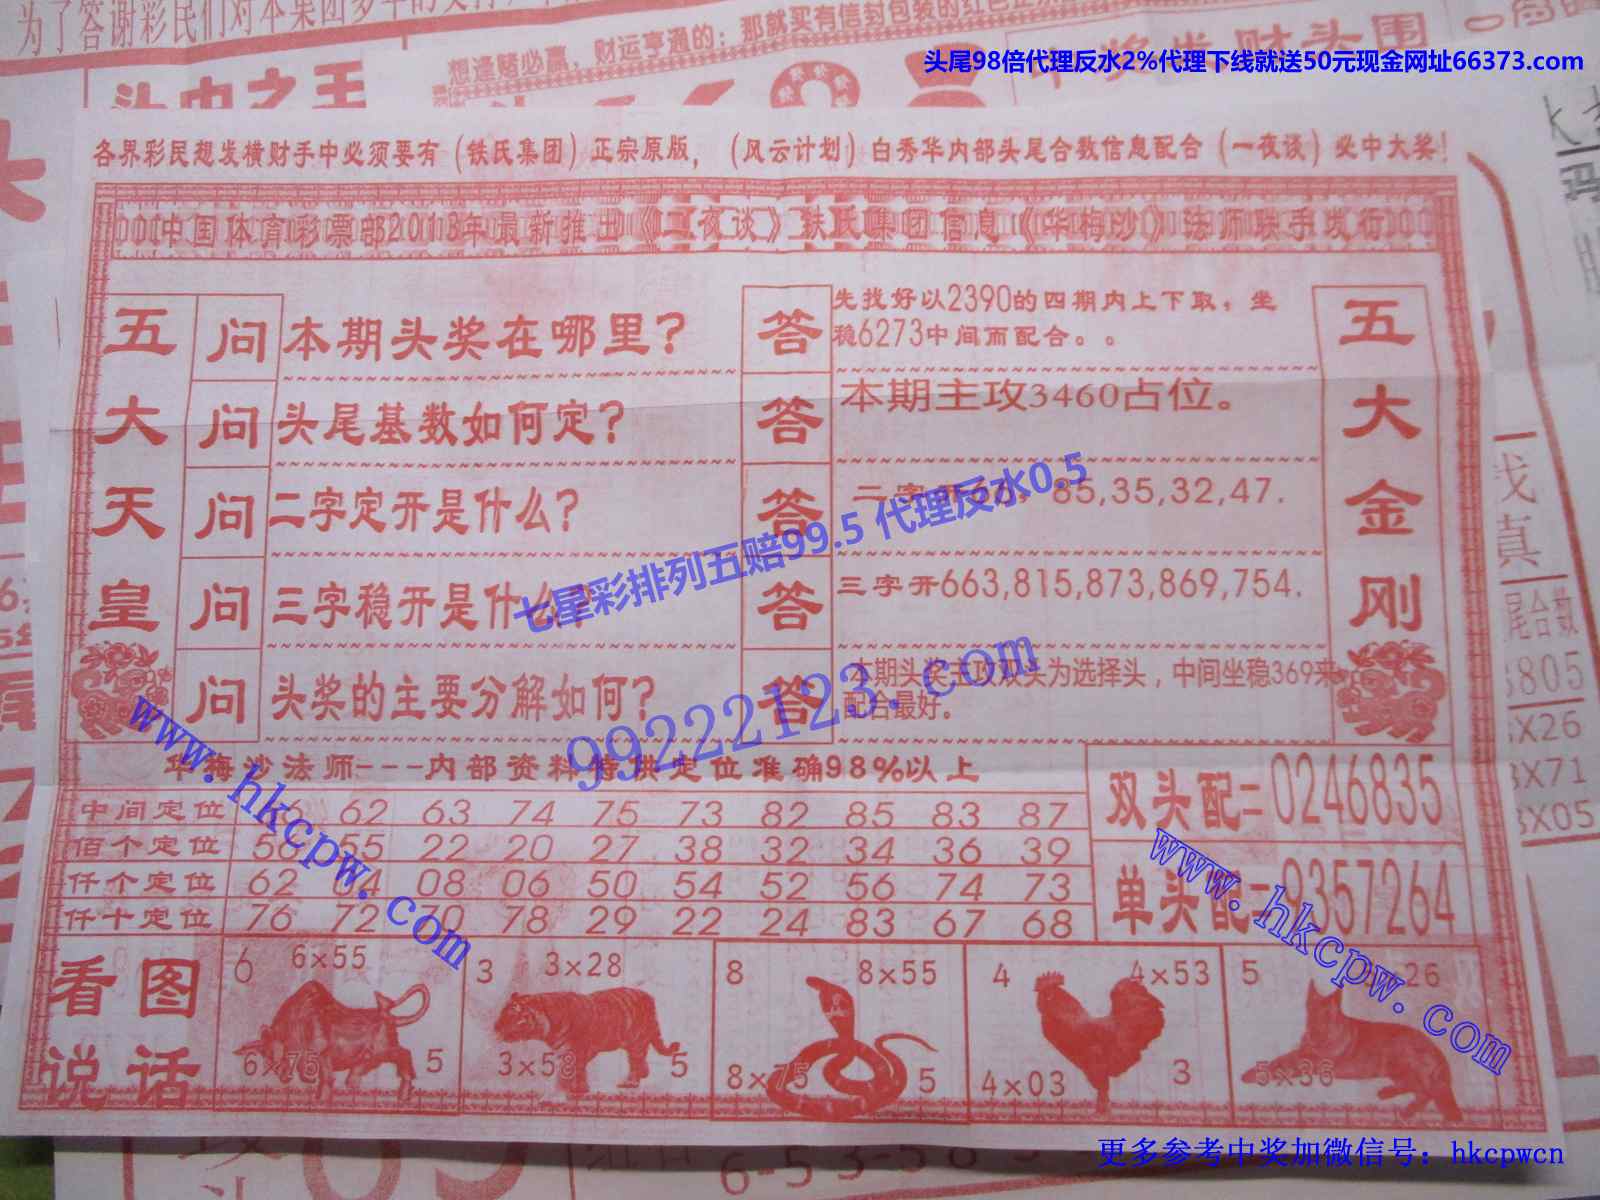 为了答谢彩民们对本集团多年的支持
想逢赌必赢，财运亨通的：那就买有信封包装的红色正宗
头尾98倍代理反水2%代理下线就送50元现金网址66373.com
各界彩民想发横财手中必须要有（铁氏集团）正宗原版，（风云计划）白秀华内部头尾合数信息配合（一夜谈）必中大奖！
中国体育彩票部2013年最新推出《一夜谈》铁氏集团信息《华梅沙》法师联手发行
五大天皇
问 本期头奖在哪里？
答 先找好以2390的四期内上下取；坐
稳6273中间而配合。。
问 头尾基数如何定？
答 本期主攻3460占位。
问 二字定开是什么？
答 二字开 85,35,32,47.
问 三字稳开是什么？
答 三字开663,815,873,869,754.
问 头奖的主要分解如何？
答 本期头奖主攻双头为选择头，中间坐稳369来
配合最好。
五大金刚
七星彩排列五赔99.5 代理反水0.5
99222123.com
www.hkcpw.com
华梅沙法师---内部资料特供定位准确98%以上
中间定位 62 63 74 75 73 82 85 83 87
佰个定位 56 55 22 20 27 38 32 34 36 39
仟个定位 62 04 08 06 50 54 52 56 74 73
仟十定位 76 72 70 78 29 22 24 83 67 68
双头配二 0246835
单头配二 9357264
www.hkcpw.com
看图
说话
6 6x55
6x75 5
3 3x28
3x58 5
8 8x55
8x75 5
4 4x53
4x03 3
5 26
5x36
找
真
尾合数
805
X26
X71
X05
更多参考中奖加微信号：hkcpwcn